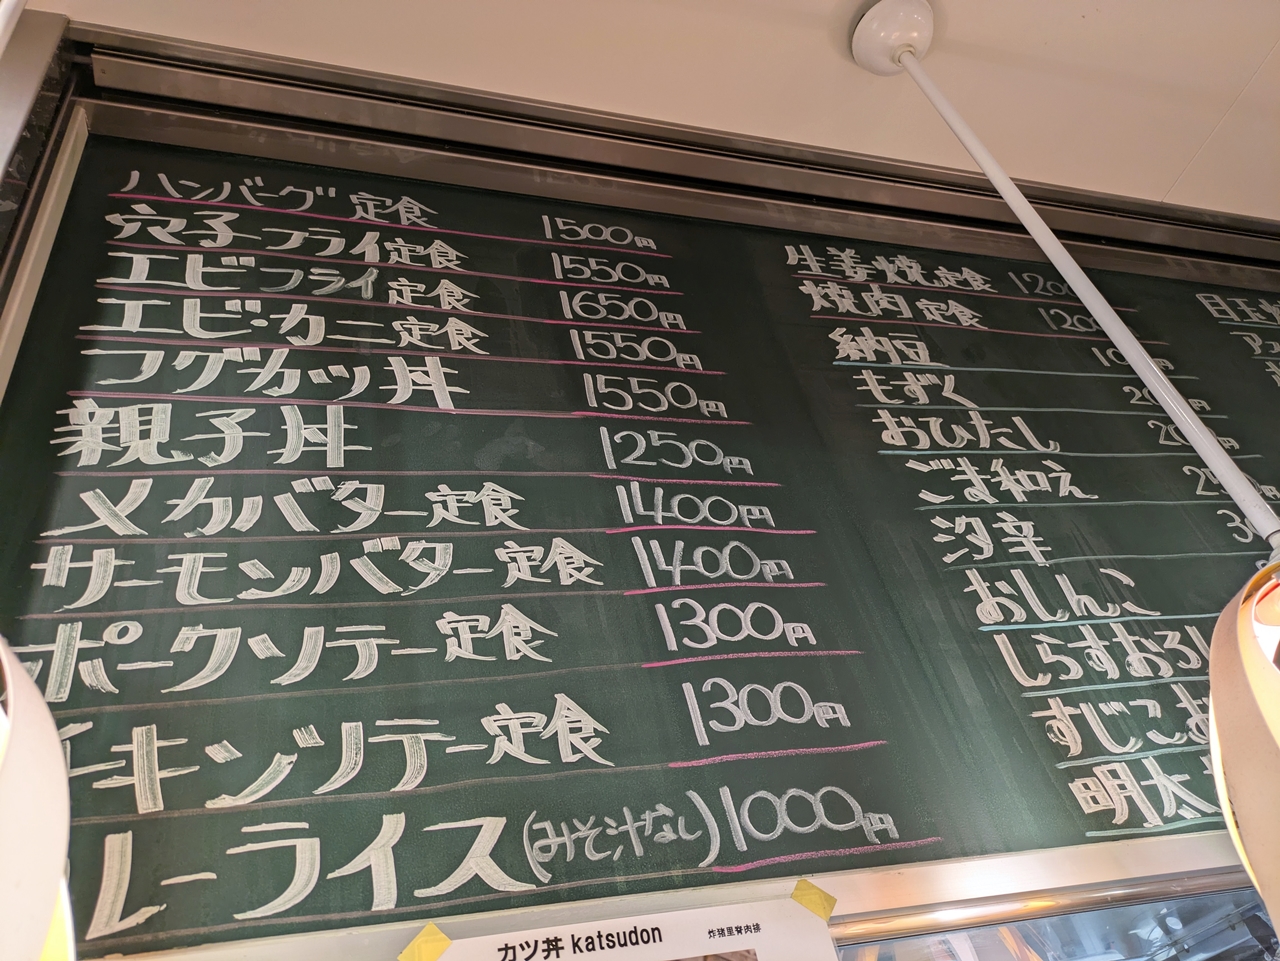 ハンバーグ定食 1500円
穴子フライ定食 1550円
エビフライ定食 1650円
エビ・カニ定食 1550円
フグカツ丼 1550円
親子丼 1250円
メカバター定食 1400円
サーモンバター定食 1400円
ポークソテー定食 1300円
キンソテー定食 1300円
レーライス(みそ汁なし) 1000円
生姜焼定食 120
焼肉定食 120
納豆 10 円
もずく 20 円
おひたし 20 円
ごま和え 25
汐辛 3
おしんこ
しらすおろし
すじこお
明太
目玉
カツ丼 katsudon 炸猪里脊肉排